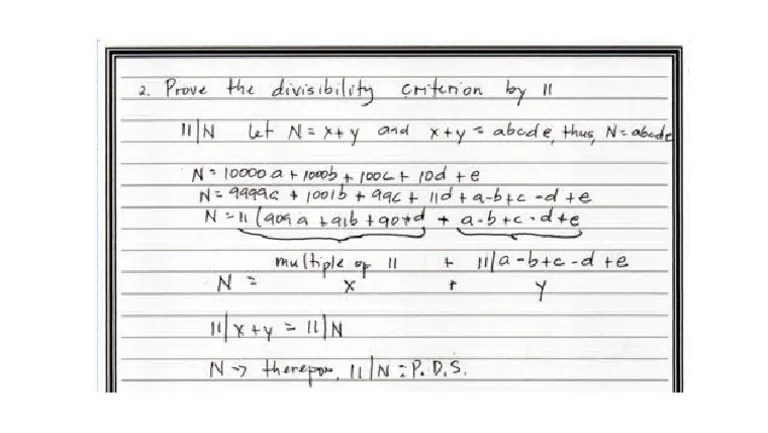 2. Prove the divisibility criterion by 11
11|N let N = x+y and x+y = abcde, thus, N = abcde
N = 10000a + 1000b + 100c + 10d + e
N = 9999a + 1001b + 99c + 11d + a-b+c-d+e
N = 11(909a + 91b + 90+d + a-b+c-d+e
multiple of 11 + 11|a-b+c-d+e
N = x + y
11|x+y = 11|N
N → therefore, 11|N = P.D.S.